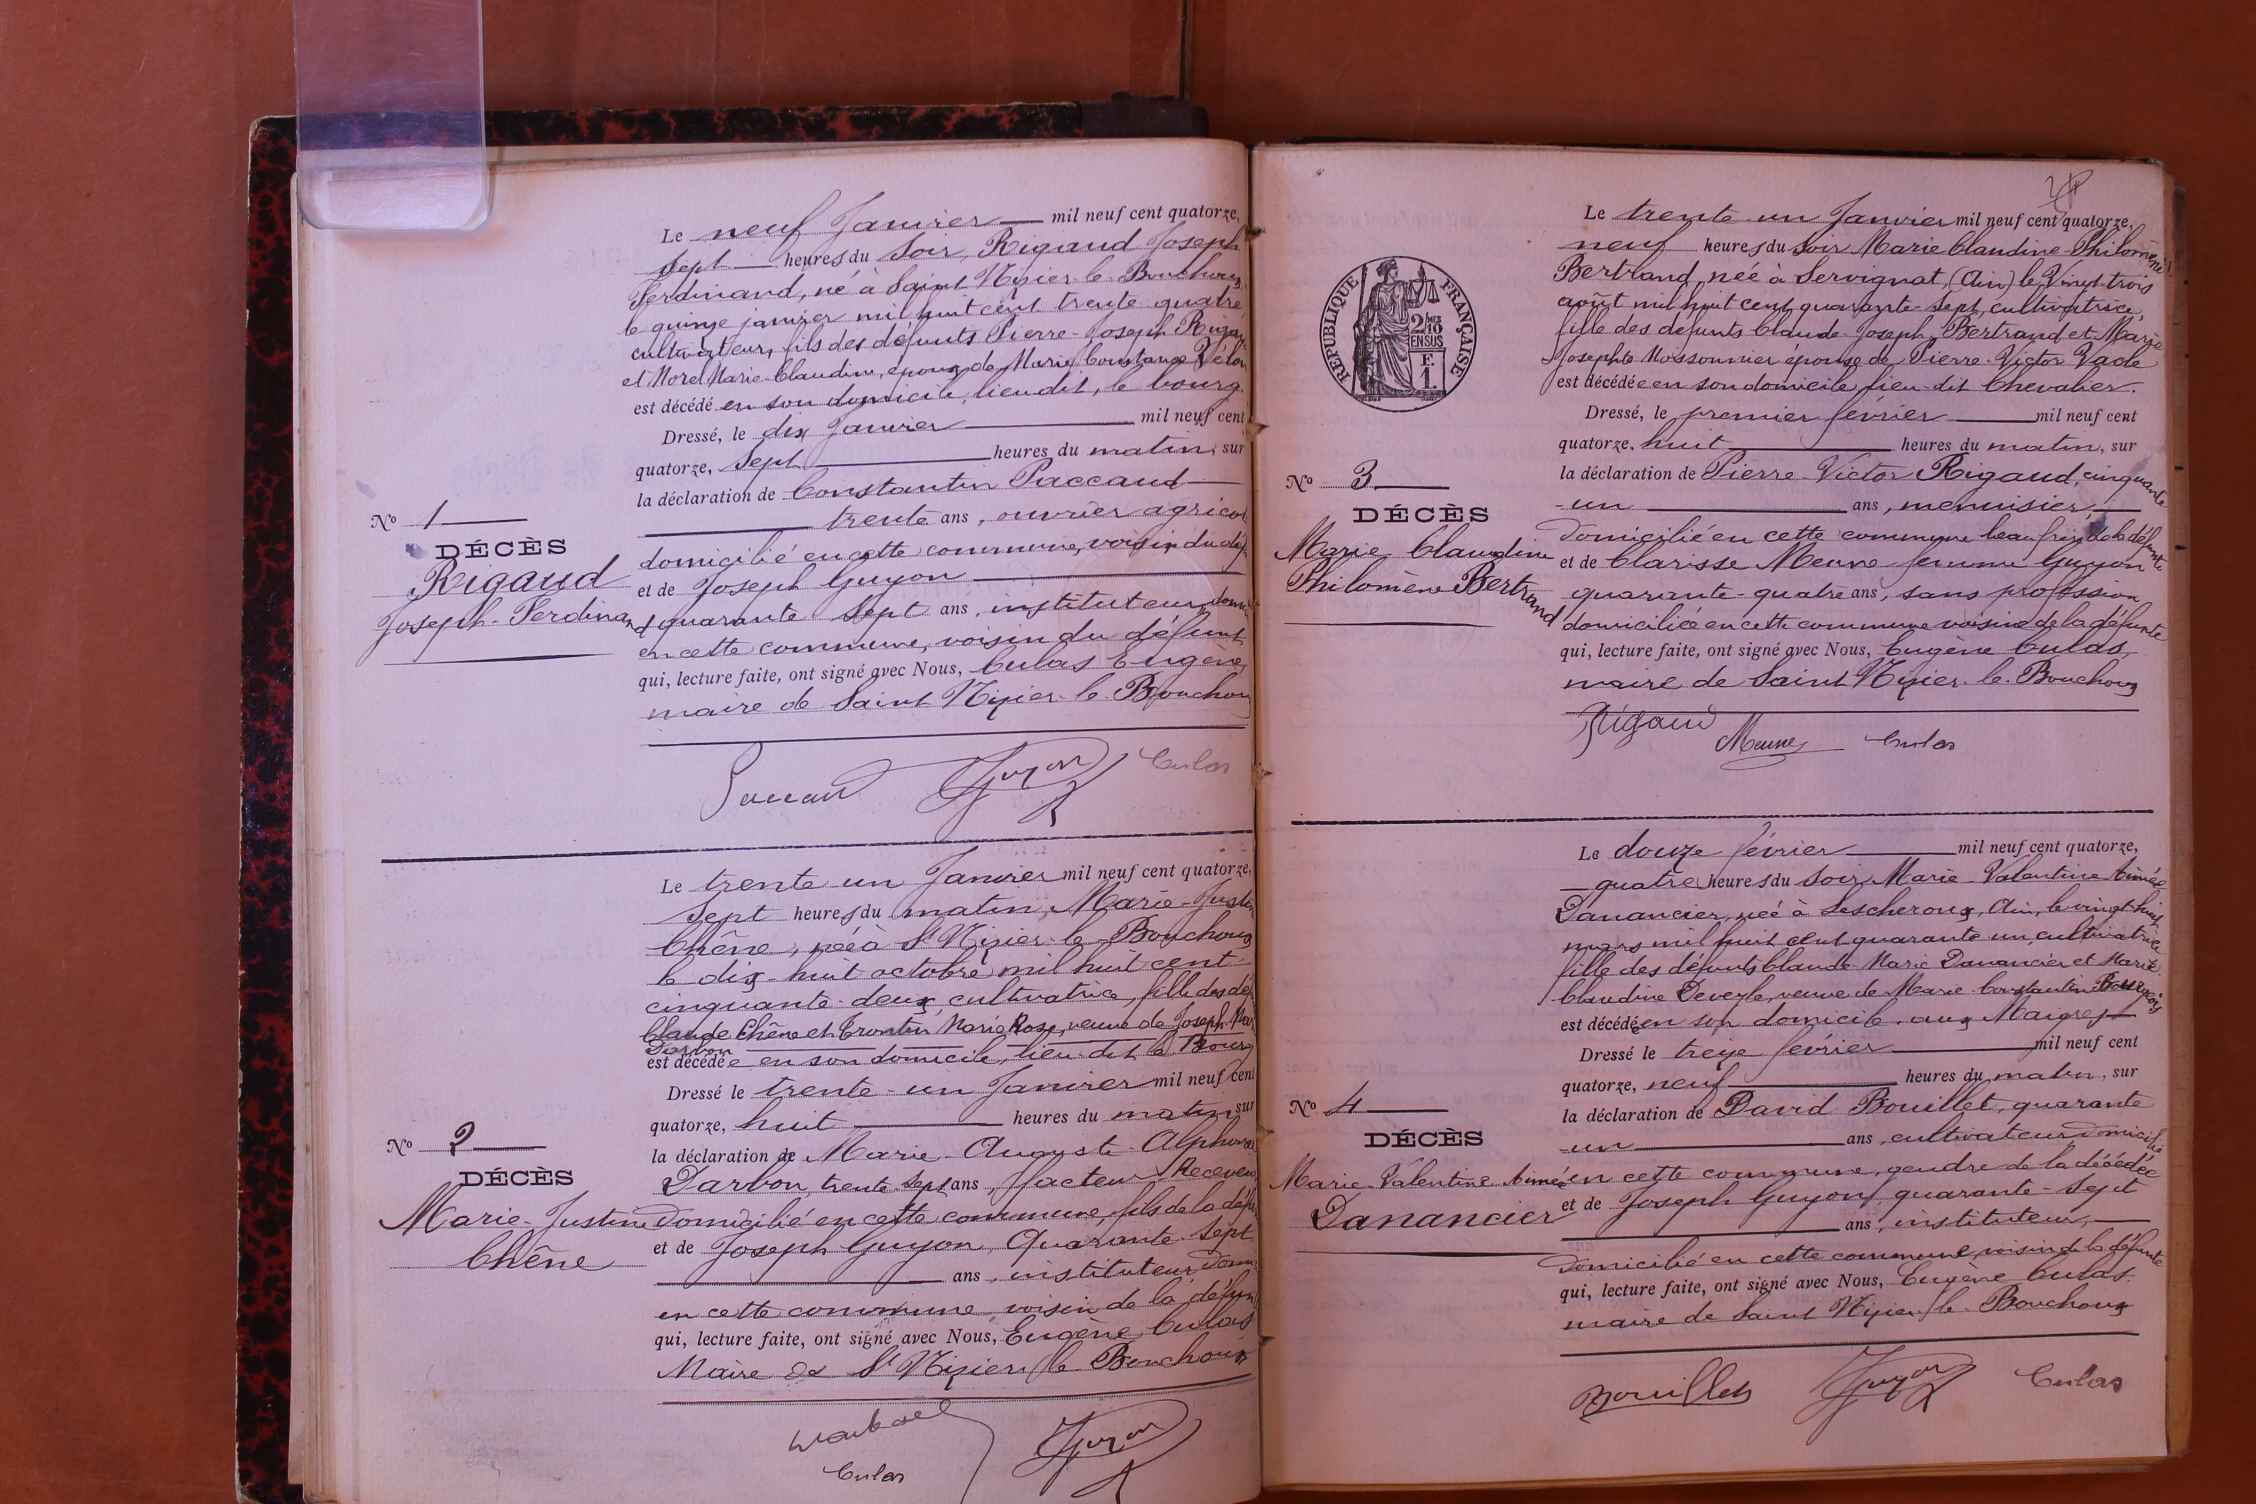 Le neuf Janvier mil neuf cent quatorze,
sept heures du soir, Rigaud Joseph
Ferdinand, né à Saint Nizier-le-Bouchoux
le quinze janvier mil huit cent trente quatre
cultivateur, fils des défunts Pierre-Joseph Rigaud
et Morel Marie-Claudine, époux de Marie Constance
est décédé en son domicile, lieu dit, le bourg.
Dressé, le dix Janvier mil neuf cent
quatorze, sept heures du matin, sur
la déclaration de Constantin Paccaud
trente ans, ouvrier agricole
domicilié en cette commune, voisin du déf
et de Joseph Guyon
quarante sept ans, instituteur, domi
en cette commune, voisin du défunt
qui, lecture faite, ont signé avec Nous, Culas Eugène,
maire de Saint Nizier-le-Bouchoux
No 1
DÉCÈS
Rigaud
Joseph-Ferdinand
Guyon Culas
Le trente un Janvier mil neuf cent quatorze,
sept heures du matin, Marie-Justine
Chêne, née à St Nizier-le-Bouchoux
le dix-huit octobre mil huit cent
cinquante-deux, cultivatrice, fille des déf
Claude Chêne et Trontin Marie Rose, veuve de Joseph Mar
Darbon
est décédée en son domicile, lieu dit le Bourg
Dressé le trente-un Janvier mil neuf cent
quatorze, huit heures du matin sur
la déclaration de Marie-Auguste-Alphonse
Darbon, trente sept ans, facteur Receveur
domicilié en cette commune, fils de la défu
et de Joseph Guyon, Quarante-sept
ans, instituteur, dom
en cette commune, voisin de la défun
qui, lecture faite, ont signé avec Nous, Eugène Culas
Maire de St Nizier le Bouchoux
No 2
DÉCÈS
Marie-Justine
Chêne
Guyon
Culas
RÉPUBLIQUE FRANÇAISE
2/10 EN SUS
F.
1.
Le trente-un Janvier mil neuf cent quatorze,
neuf heures du soir Marie Claudine-Philomène
Bertrand, née à Servignat, (Ain) le Vingt-trois
août mil huit cent quarante-sept, cultivatrice,
fille des défunts Claude-Joseph Bertrand et Marie
Josephte Moissonnier épouse de Pierre-Victor
est décédée en son domicile lieu-dit Chevalier.
Dressé, le premier février mil neuf cent
quatorze, huit heures du matin, sur
la déclaration de Pierre-Victor Rigaud, cinquante
-un ans, menuisier,
domicilié en cette commune beau frère de la défunte
et de Clarisse Meune femme Guyon
quarante-quatre ans, sans profession
domiciliée en cette commune voisine de la défunte
qui, lecture faite, ont signé avec Nous, Eugène Culas,
maire de Saint Nizier-le-Bouchoux
No 3
DÉCÈS
Marie Claudine
Philomène Bertrand
Rigaud
Meune Culas
Le douze février mil neuf cent quatorze,
quatre heures du soir Marie-Valentine Aimée
Danancier, née à Lescheroux, Ain, le vingt-huit
mars mil huit cent quarante un, cultivatrice
fille des défunts Claude-Marie Danancier et Marie
Claudine Deveyle, veuve de Marie-Constantin Bourgeois
est décédée en son domicile, aux Maigres
Dressé le treize février mil neuf cent
quatorze, neuf heures du matin, sur
la déclaration de David Bouillet, quarante
-un ans, cultivateur domicilié
en cette commune, gendre de la décédée
et de Joseph Guyon, quarante-sept
ans, instituteur,
domicilié en cette commune, voisin de la défunte
qui, lecture faite, ont signé avec Nous, Eugène Culas
maire de Saint Nizier-le-Bouchoux
No 4
DÉCÈS
Marie-Valentine Aimée
Danancier
Bouillet Guyon Culas